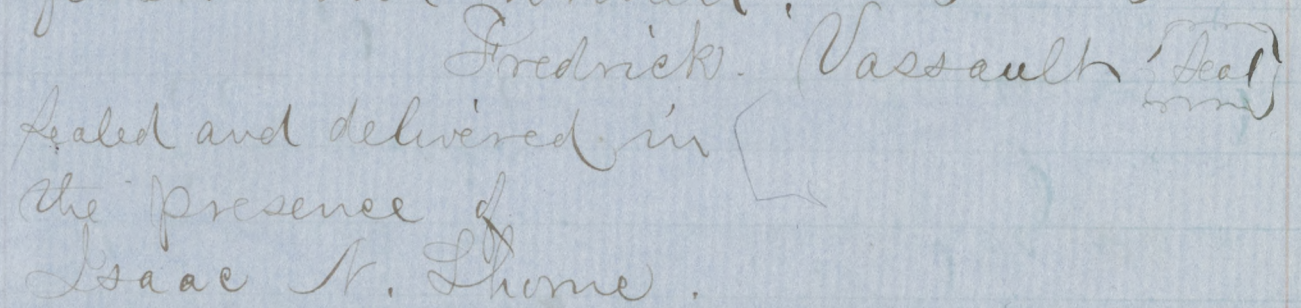 Fredrick. Vassault (Seal)
Sealed and delivered in
the presence of
Isaac N. Thorne.